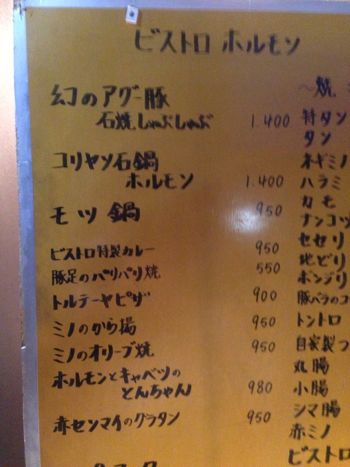 ビストロ ホルモン
幻のアグー豚
石焼しゃぶしゃぶ 1.400
コリヤン石鍋
ホルモン 1.400
モツ鍋 950
ビストロ特製カレー 950
豚足のパリパリ焼 550
トルテーヤピザ 900
ミノのから揚 950
ミノのオリーブ焼 950
ホルモンとキャベツの
とんちゃん 980
赤センマイのグラタン 950
〜焼
特タン
タン
ネギミノ
ハラミ
カモ
ナンコツ
セセリ
地どり
ボンジリ
豚バラのコ
トントロ
自家製つ
丸腸
小腸
シマ腸
赤ミノ
ビストロ